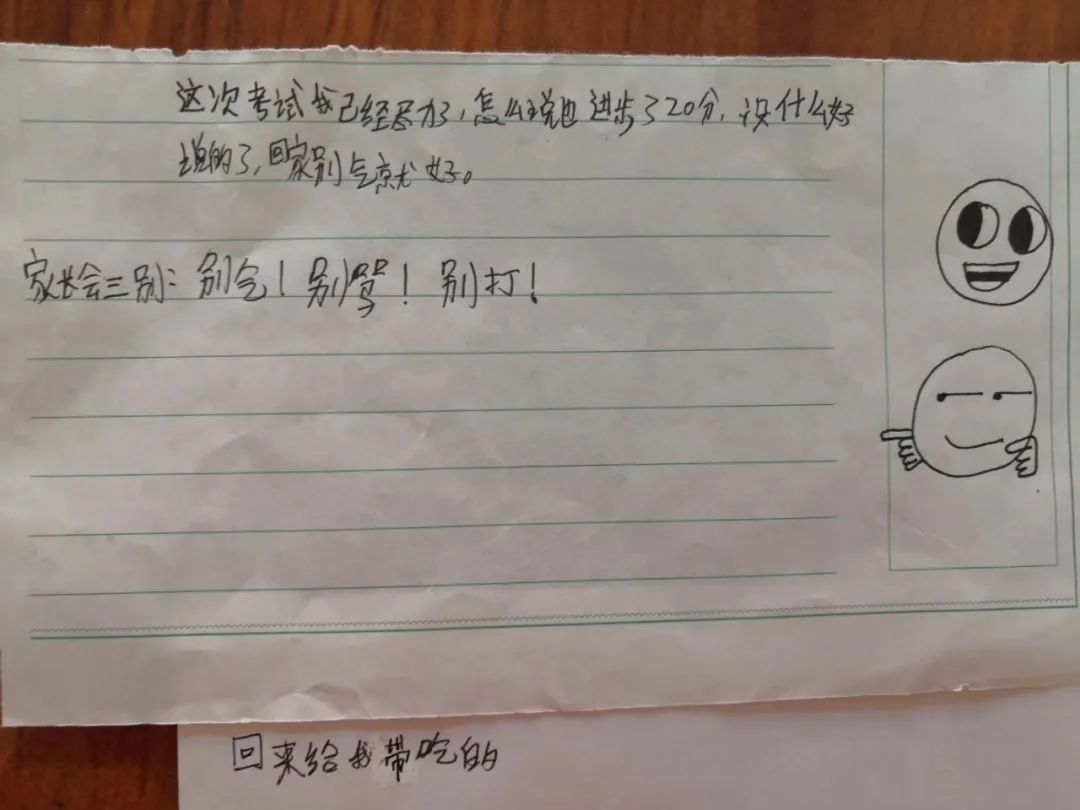 这次考试我已经尽力了,怎么说也进步了20分,没什么好
说的了,回家别气就好。
家长会三别:别气!别骂!别打!
回来给我带吃的